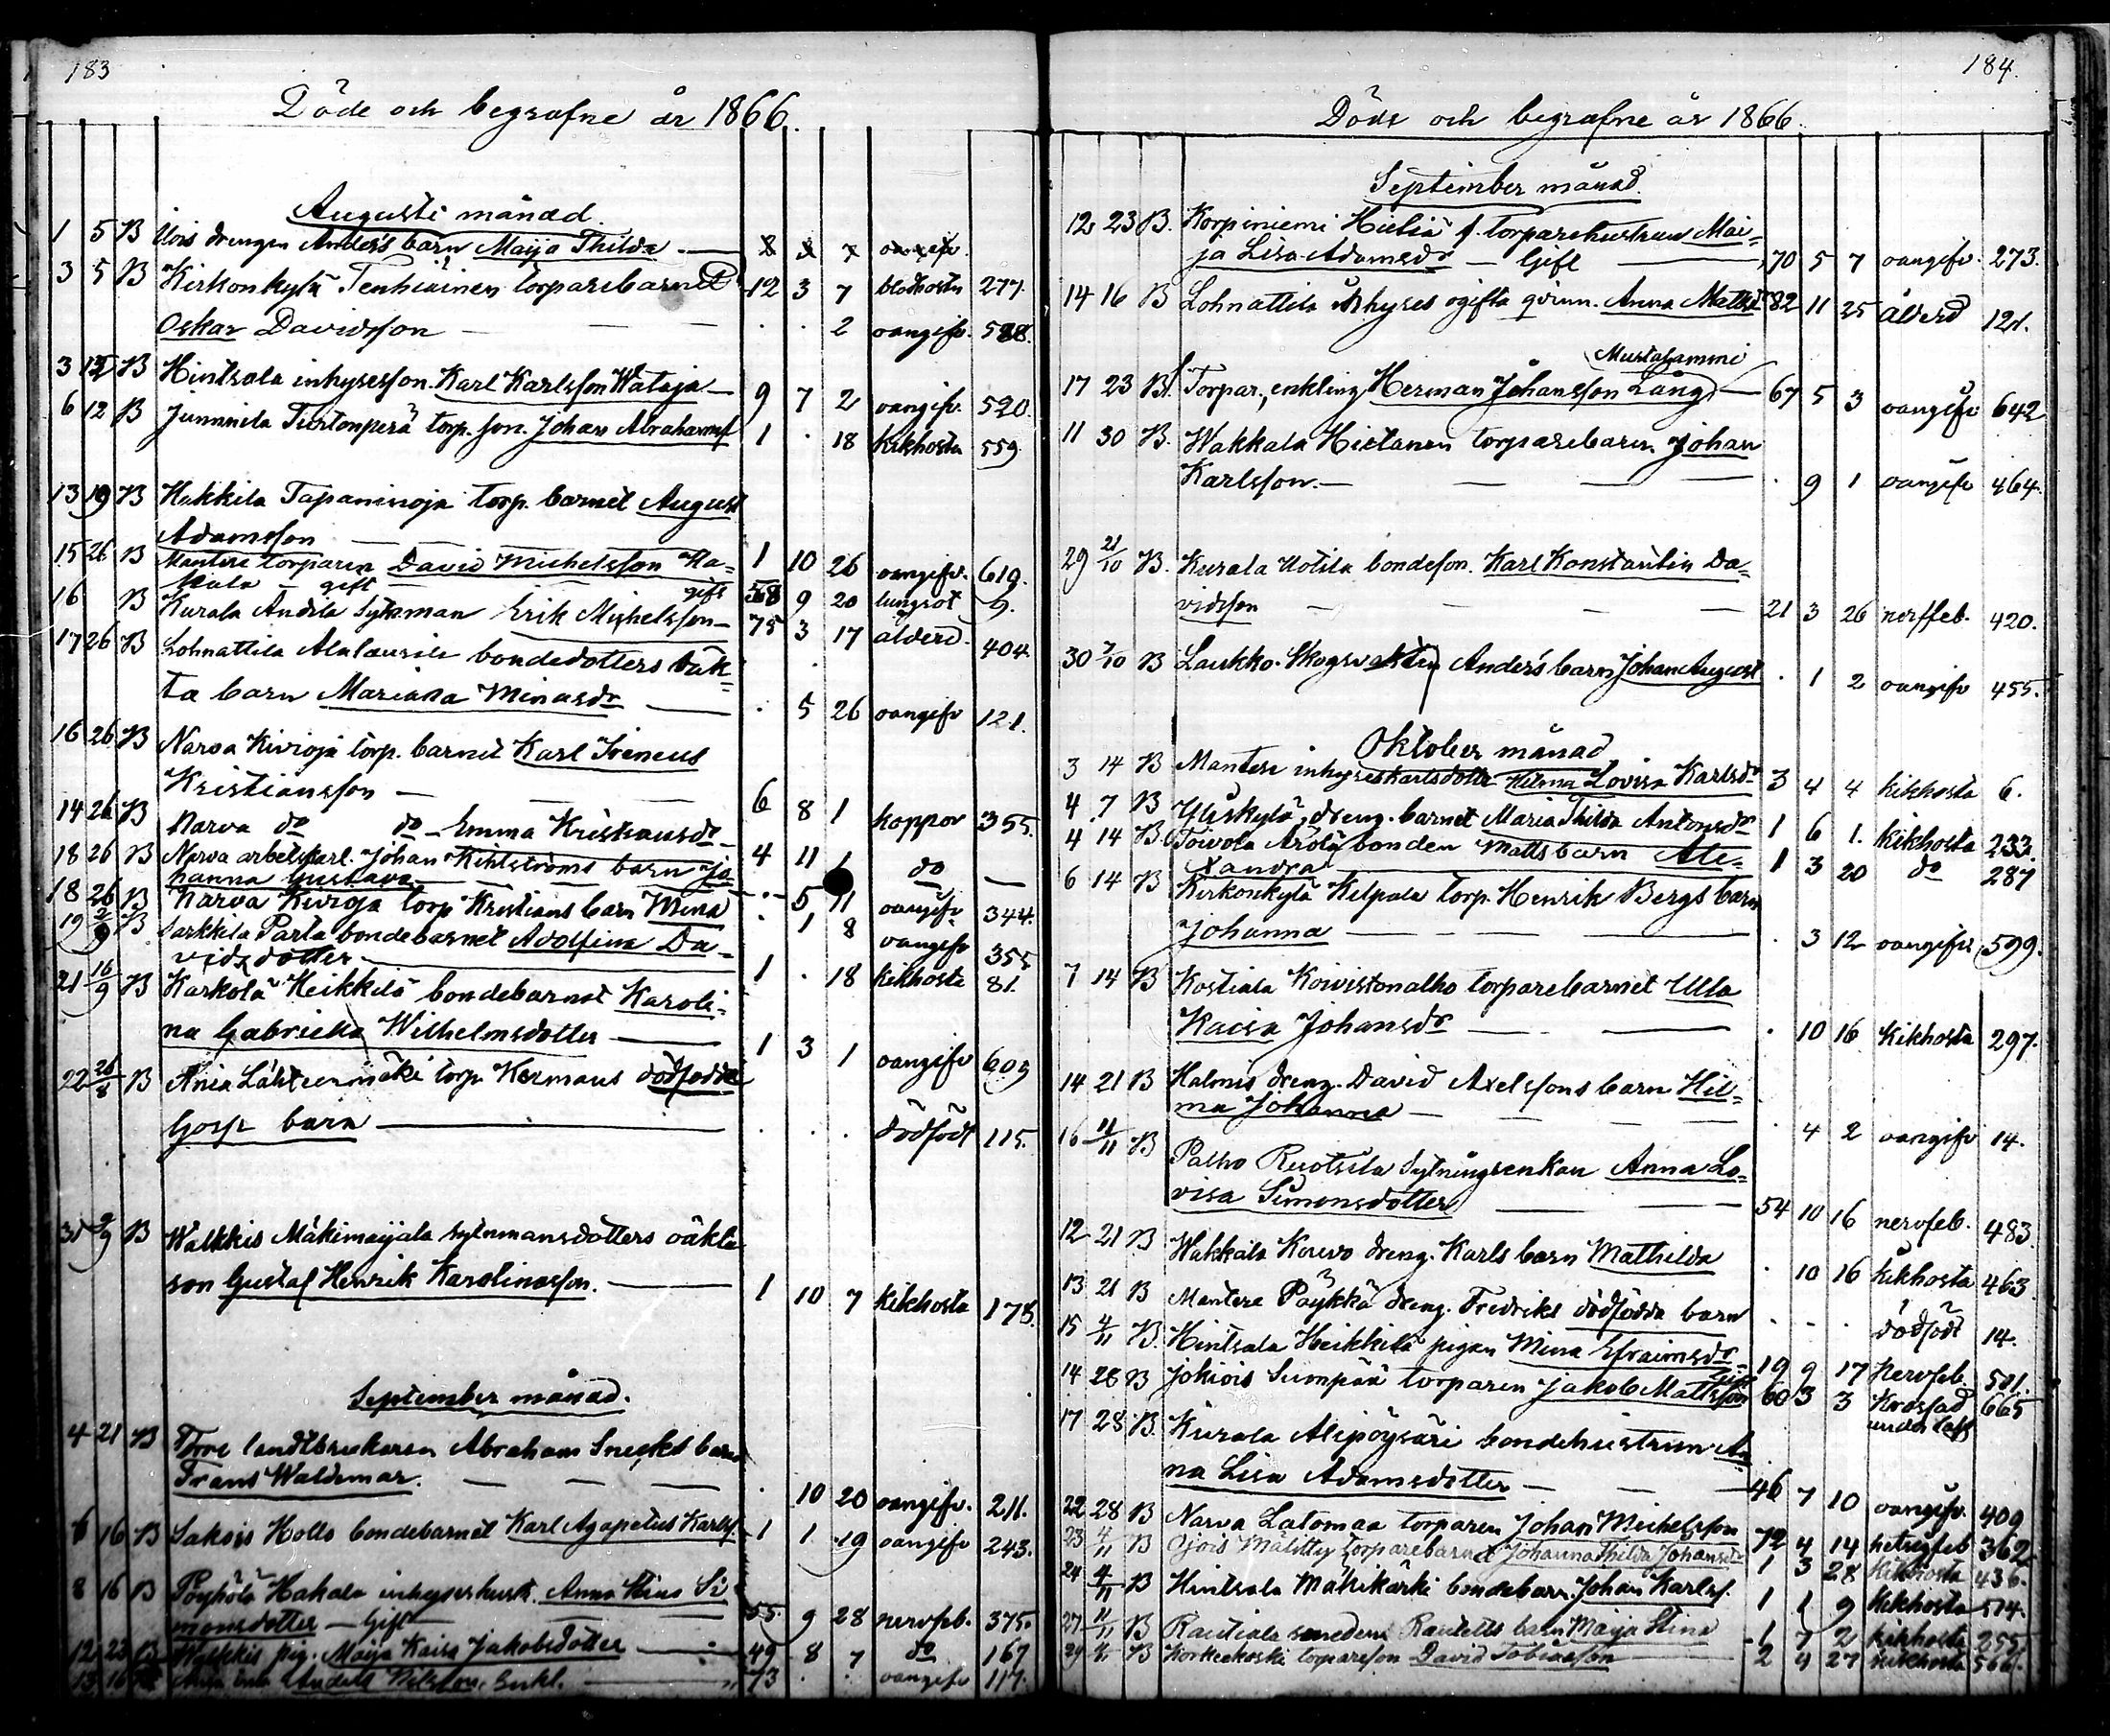 183
Döde och begrafne år 1866.
Augusti månad.
1 5 B Uois drengen Anders barn Maija Thilda — x x x oangifv.
3 5 B Kirkonkylä Tenhiäinen torparebarnet 12 3 7 blodhosta 277.
Oskar Davidsson — — — . . 2 oangifv. 588.
3 12 B Hintsala inhysesson Karl Karlsson Wataja — 9 7 2 oangifv. 520.
6 12 B Junnila Turtonperä torp. son Johan Abrahamss. 1 . 18 kikhosta 559.
13 19 B Hakkila Tapaninoja torp. barnet August
Adamsson — — — 1 10 26 oangifv. 619.
15 26 B Mantere torparen David Michelsson Ha=
kala — gift — 58 9 20 lungsot 9.
16 B Kurala Andila Sytnman Erik Michelsson — gift 75 3 17 ålderd. 404.
17 26 B Lohnattila Alalaurila bondedotters oäk=
ta barn Mariana Minasdr — . 5 26 oangifv 121.
16 26 B Narva Kivioja torp. barnet Karl Ireneus
Kristiansson — — — 6 8 1 koppor 355.
14 26 B Narva do do — Emma Kristiansdr — 4 11 1 do —
18 26 B Narva arbetskarl. Johan Kihlströms barn Jo=
hanna Gustava — . 5 11 oangifv 344.
18 26 B Narva Kivioja torp Kristians barn Mina . 1 8 oangifv 355.
19 2/9 B Sarkkila Parta bondebarnet Adolfina Da=
vidsdotter — 1 . 18 kikhosta 81.
21 16/9 B Karkola Heikkilä bondebarnet Karoli=
na Gabrielsa Wilhelmsdotter — 1 3 1 oangifv 603
22 26/8 B Ania Lähteenmäki torp. Hermans dödfödda
Goss barn — . . . dödfödt 115.
31 2/9 B Walkkis Mäkimaijala sytnmansdotters oäkta
son Gustaf Henrik Karolinasson. — 1 10 7 kikhosta 178.
September månad.
4 21 B landtbrukaren Abraham barn
Frans Waldemar. — — — . 10 20 oangifv. 211.
6 16 B Sakois Hollo bondebarnet Karl Agapetus Karlss. 1 1 19 oangifv 243.
8 16 B Pöyhölä Hakala inhyseshust. Anna Stina Si=
monsdotter — Gift — 55 9 28 nervfeb. 375.
12 23 B Walkkis pig. Maija Kaisa Jakobsdotter — 49 8 7 do 167
13 16 Anders Nilsson, Enkl. — 73 . . oangifv 117.
184.
Döde och begrafne år 1866.
September månad.
12 23 B. Korpiniemi Hielia f. torparehustrun Mai=
ja Lisa Adamsdr — Gift — 70 5 7 oangifv. 273.
14 16 B Lohnattila inhyses ogifta qvinn. Anna Mattsdr 82 11 25 ålderd 121.
Mustalammi
17 23 B. Torpar., enkling Herman Johansson Lång — 67 5 3 oangifv 642
11 30 B. Wakkala Hietanen torparebarn Johan
Karlsson. — — — . 9 1 oangifv 464.
29 21/10 B. Kurala Uotila bondeson. Karl Konstantin Da=
vidsson — — — 21 3 26 nerffeb. 420.
30 7/10 B Laukko Skogsvakten Anders barn Johan August . 1 2 oangifv 455.
Oktober månad
3 14 B Mantere inhyseskarlsdotter Helena Lovisa Karlsdr 3 4 4 kikhosta 6.
4 7 B Yliskylä, dreng. barnet Maria Thilda Antonsdr 1 6 1. kikhosta 233.
4 14 B Toivola Arola bonden Matts barn Ale=
xandra — 1 3 20 do 287
6 14 B Kirkonkylä Kelpala torp. Henrik Bergs barn
Johanna — — — . 3 12 oangifv 599.
7 14 B Kostiala Koivistonalho torparebarnet Ulla
Kaisa Johansdr — — . 10 16 kikhosta 297.
14 21 B Halmis dreng. David Axelssons barn Hil=
ma Johanna — — . 4 2 oangifv 14.
16 11/11 B Palho Ruotsila Sytningsenkan Anna Lo=
visa Simonsdotter — — 54 10 16 nervfeb. 483.
12 21 B Wakkala Kouvo dreng. Karls barn Mathilda . 10 16 kikhosta 463.
13 21 B Mantere Pöykkä dreng. Fredriks dödfödda barn . . . dödfödt 14.
15 4/11 B. Hintsala Heikkilä pigan Mina Efraimsdr — 19 9 17 Nervfeb. 501.
14 28 B Jokiois Sumpää torparen Jakob Mattsson gift 60 3 3 Krossad under lass 665
17 28 B. Kurala Alipöysäri bondehustrun An=
na Lisa Adamsdotter — — 46 7 10 oangifv. 409
22 28 B Narva Latomaa torparen Johan Michelsson 72 4 14 hetsigfeb 362
23 4/11 B Ojois Malitty torparebarnet Johanna Thilda Johansdr 1 3 28 kikhosta 436.
24 4/11 B Hintsala Mäkikärki bondebarn Johan Karlss. 1 1 9 kikhosta 514.
27 11/11 B Rautiala smeden Rautells barn Maija Stina 1 7 2 kikhosta 255.
29 4/11 B Korkeekoski torpareson David Tobiasson — 2 4 27 kikhosta 566.